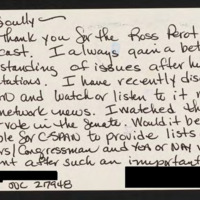 ocully—
thank you for the Ross Perot
cast. I always gain a bet
standing of issues after he
tations. I have recently disc
and watch or listen to it
network news. I watched th
vote in the Senate. Would it be
ble for C-SPAN to provide lists
rs/Congressman and YEA or NAY
after such an important